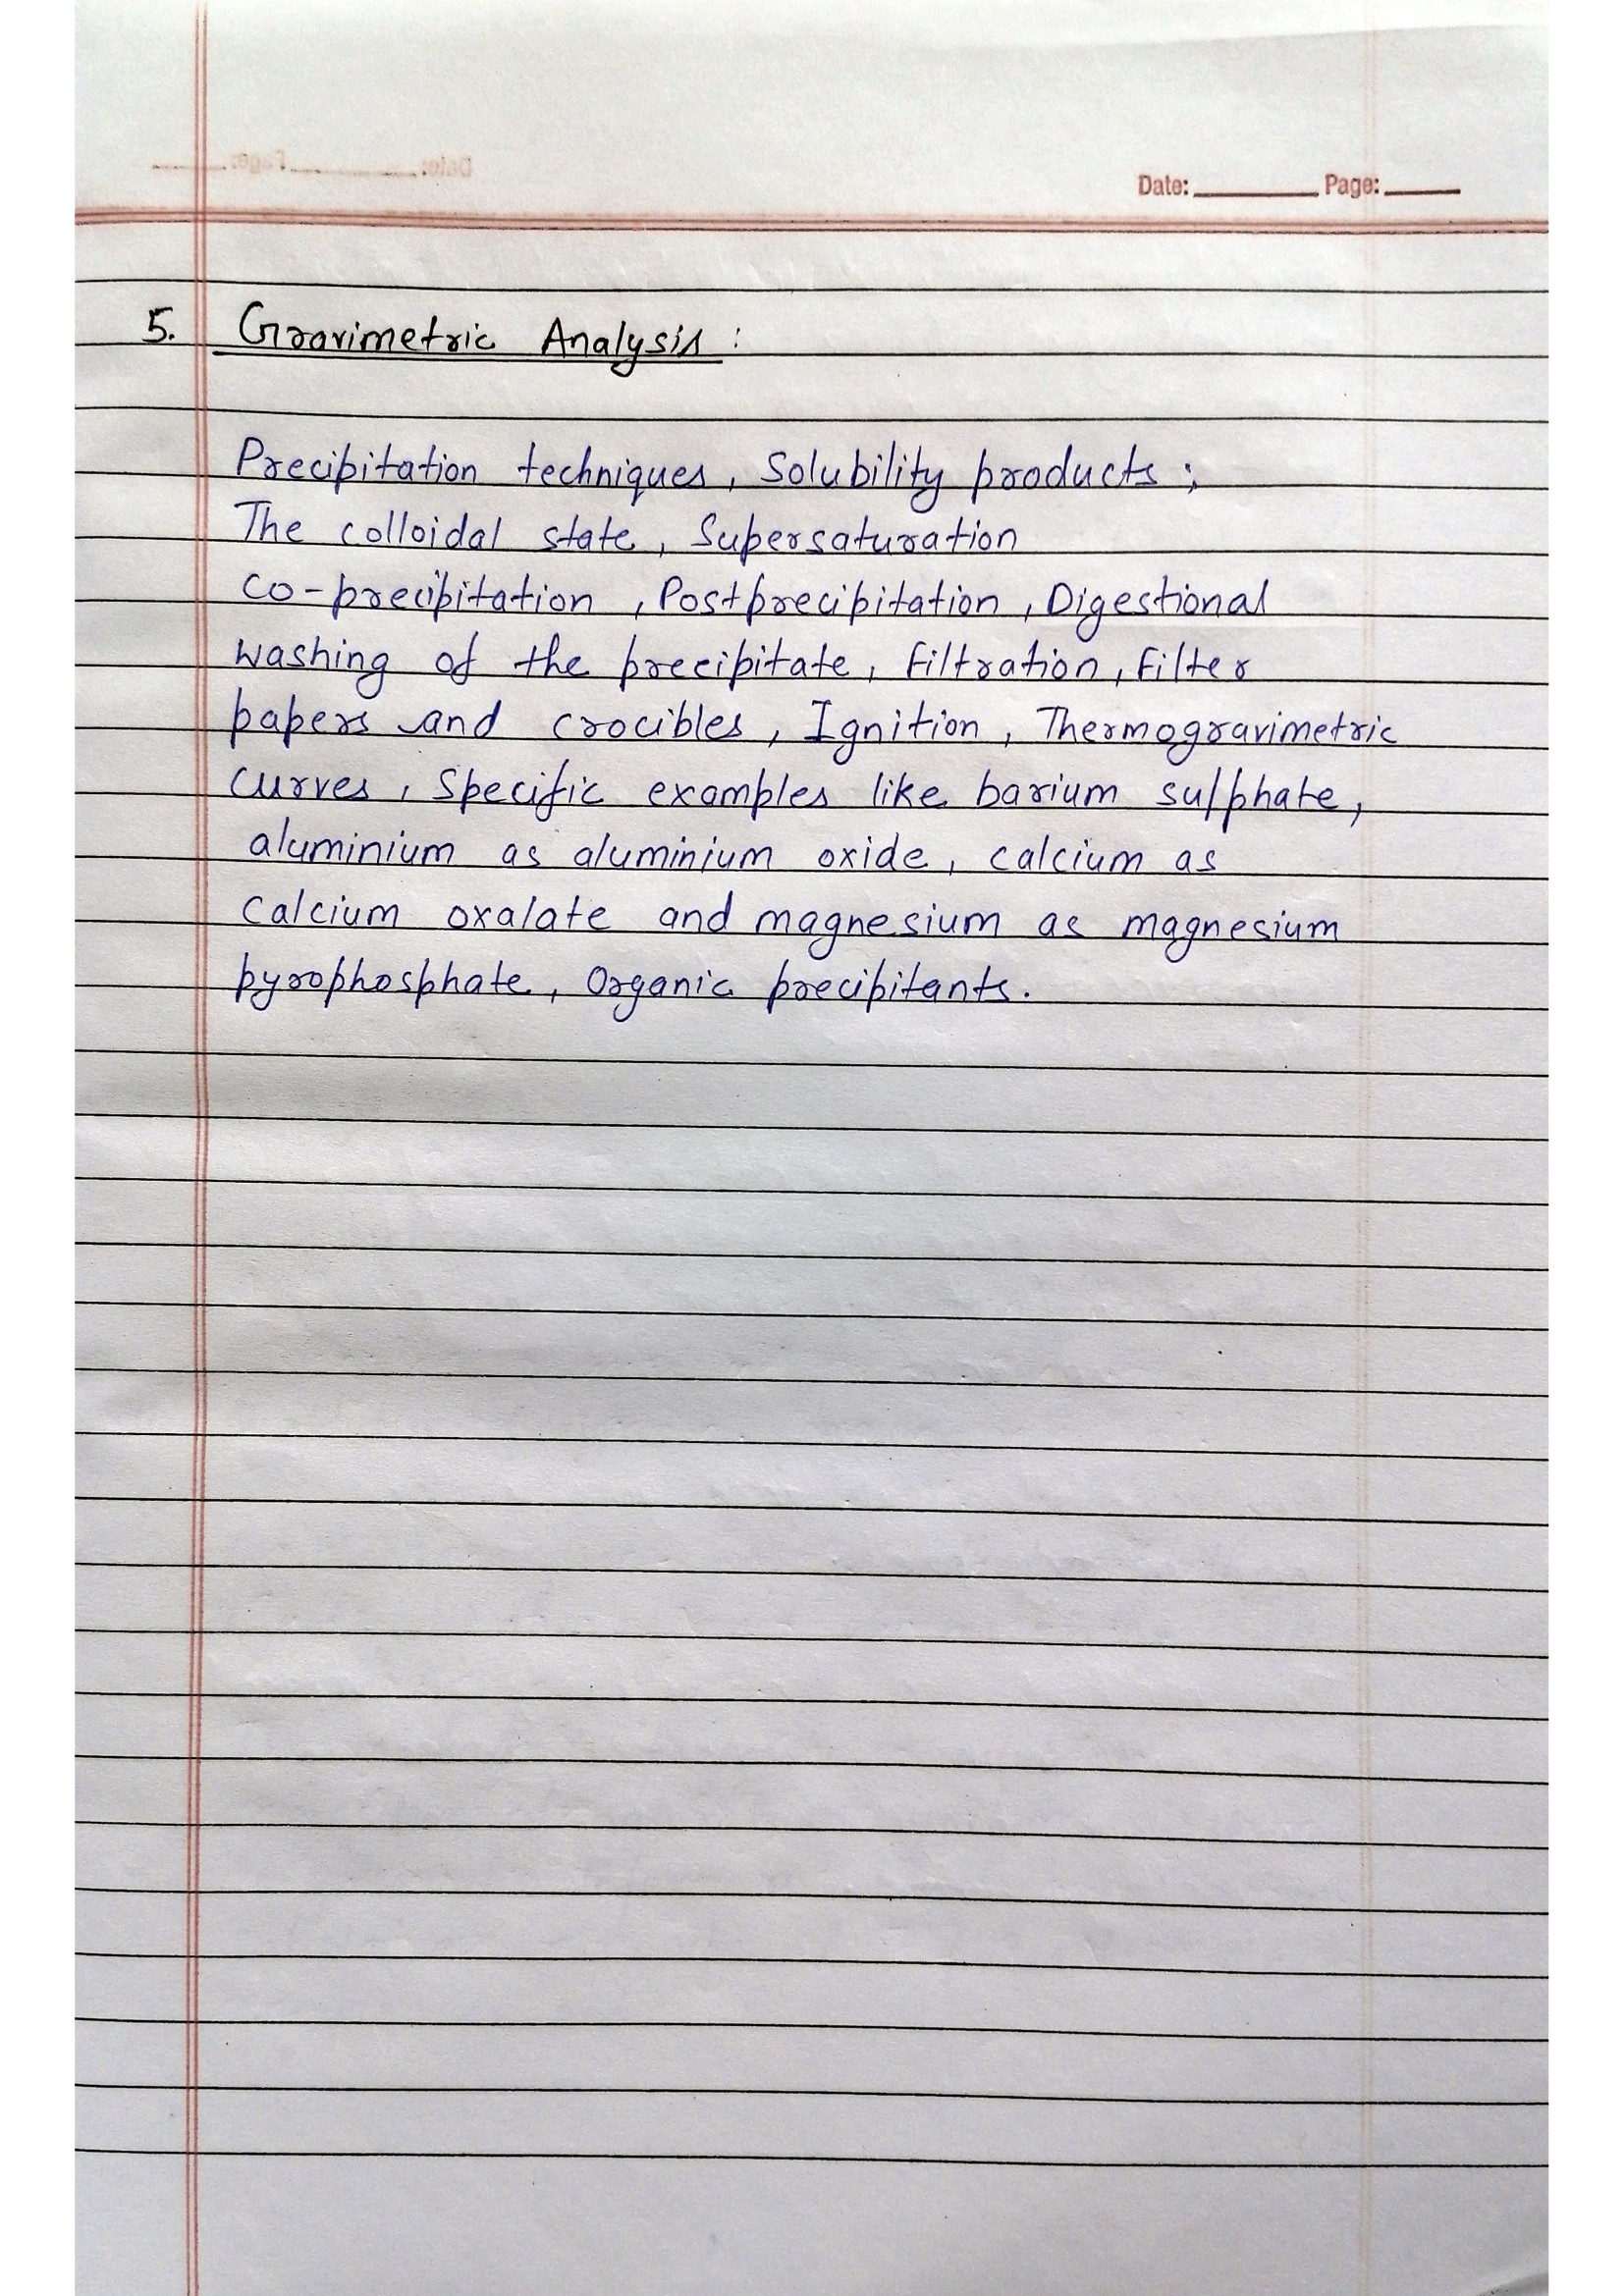 Date: Page:
5. Gravimetric Analysis :
Precipitation techniques, Solubility products ;
The colloidal state, Supersaturation
co-precipitation, Postprecipitation, Digestional
washing of the precipitate, filtration, filter
papers and crocibles, Ignition, Thermogravimetric
curves, Specific examples like barium sulphate,
aluminium as aluminium oxide, calcium as
calcium oxalate and magnesium as magnesium
pyrophosphate, Organic precipitants.